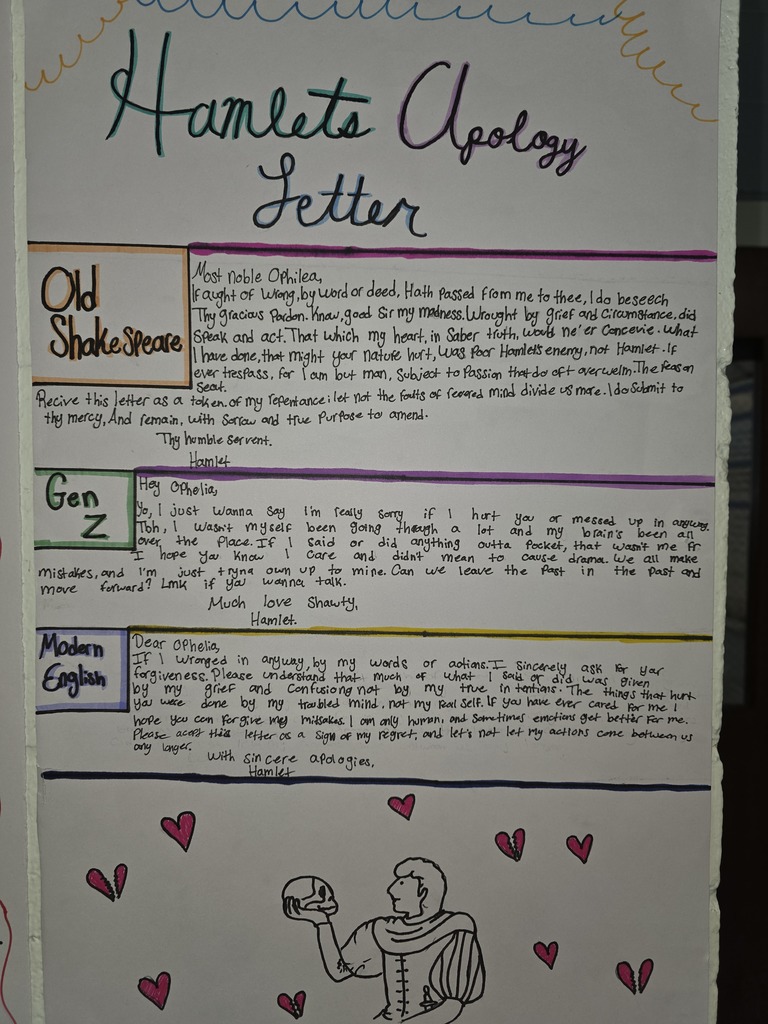 Hamlets Apology
Letter
Old
Shakespeare
Most noble Ophilea,
If aught of wrong, by word or deed, Hath passed from me to thee, I do beseech
Thy gracious pardon. Know, good Sir my madness. Wrought by grief and Circumstance, did
Speak and act. That which my heart, in Saber truth, would ne'er Concevie. What
I have done, that might your nature hurt, Was Poor Hamlet's enemy, not Hamlet. If
ever trespass, for I am but man, Subject to Passion that do oft overwelm. The reason
Seat.
Recive this letter as a token of my repentance; let not the faults of fevered mind divide us more. I do Submit to
thy mercy, And remain, with Sorrow and true Purpose to amend.
Thy humble servent.
Hamlet
Gen
Z
Hey Ophelia,
Yo, I just wanna say I'm really sorry if I hurt you or messed up in anyway.
Tbh, I wasn't myself been going through a lot and my brain's been all
over the place. If I said or did anything outta pocket, that wasn't me fr
I hope you know I care and didn't mean to cause drama. We all make
mistakes, and I'm just tryna own up to mine. Can we leave the Past in the past and
move forward? Lmk if you wanna talk.
Much love Shawty,
Hamlet.
Modern
English
Dear Ophelia,
If I wronged in anyway, by my words or actions. I sincerely ask for your
forgiveness. Please understand that much of what I said or did was given
by my grief and Confusing not by my true intentions. The things that hurt
you were done by my troubled mind, not my real self. If you have ever cared for me I
hope you can forgive my mitsakes. I am only human, and sometimes emotions get better for me.
Please acept this letter as a sign of my regret, and let's not let my actions come between us
any longer.
With sincere apologies,
Hamlet